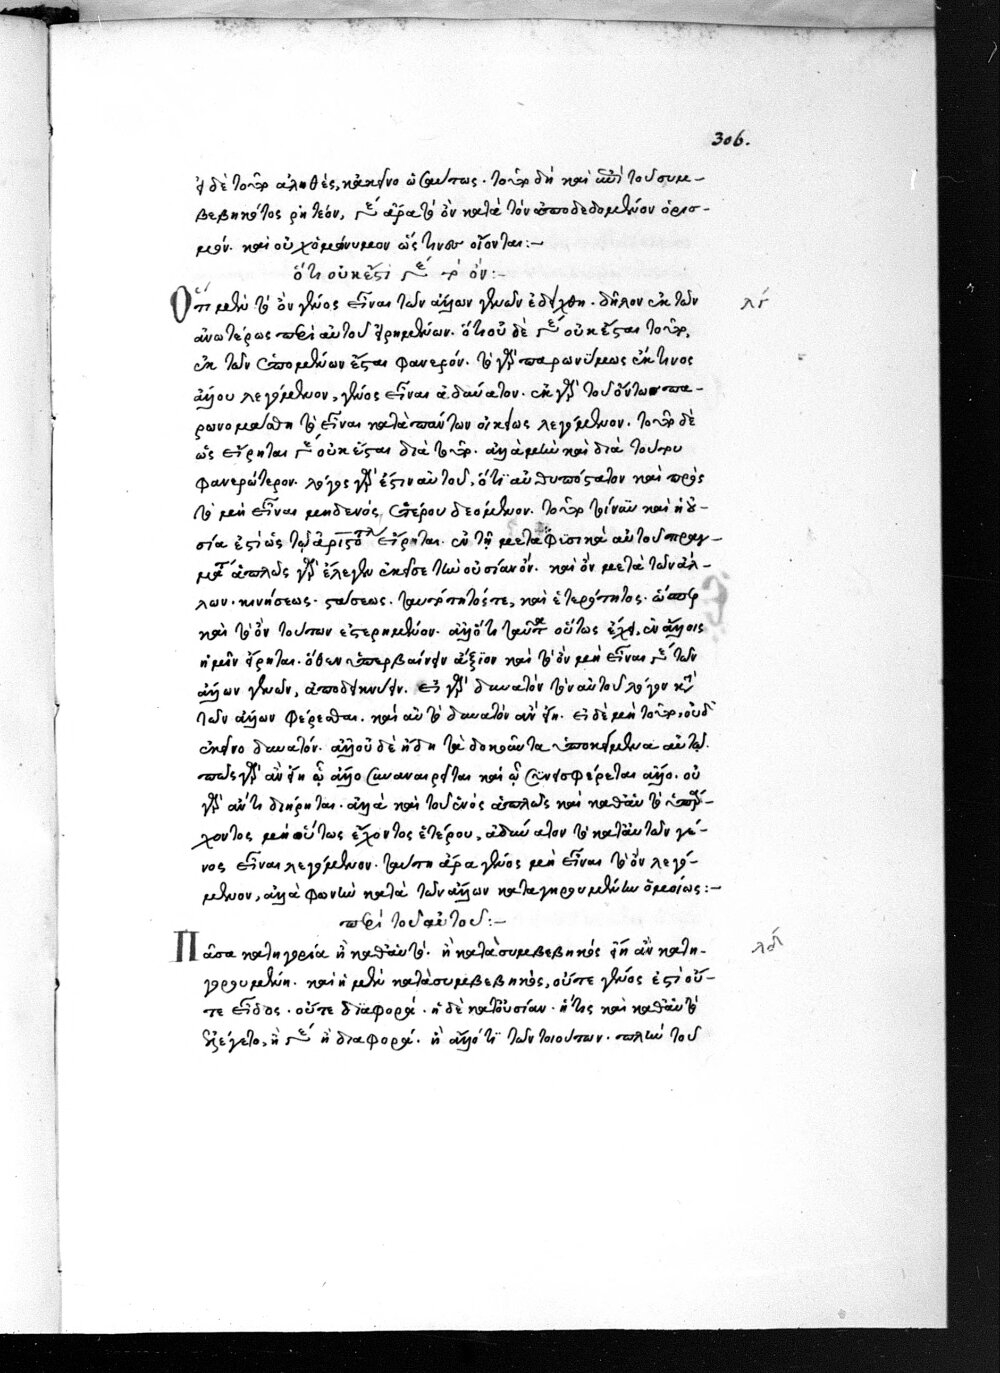 306.
δὲ τοῦτο ἀληθές, κἀκεῖνο ὡσαύτως. τοῦτο δὴ καὶ τοῦ συμ-
βεβηκότος ῥητέον, ἄρα τὸ ὂν κατὰ τὸν ἀποδεδομένον ὁρισ-
μόν. καὶ οὐχ ὁμώνυμον ὥς τινες οἴονται:-
ὅτι οὐκ ἔστι τὸ ὄν:-
Ὅτι μὲν τὸ ὂν γένος εἶναι τῶν ἄλλων γενῶν ἐδείχθη. δῆλον ἐκ τῶν λγ
ἀνωτέρως περὶ αὐτοῦ εἰρημένων. ὅτι οὐδὲ οὐκ ἔσται τοῦτο,
ἐκ τῶν ἑπομένων ἔσται φανερόν. τὸ γὰρ παρωνύμως ἔκ τινος
ἄλλου λεγόμενον, γένος εἶναι ἀδύνατον. ἐκ γὰρ τοῦ ὄντως πα-
ρωνομάσθη τὸ εἶναι κατὰ πάντων οἰκείως λεγόμενον. τοῦτο δὲ
ὡς εἴρηται οὐκ ἔσται διὰ τοῦτο. ἀλλὰ μὴν καὶ διὰ τούτου
φανερώτερον. λόγος γάρ ἐστιν αὐτοῦ, ὅτι αὐθυπόστατον καὶ πρὸς
τὸ μὴ εἶναι μηδενὸς ἑτέρου δεόμενον. τοῦτο καὶ ἡ οὐ-
σία ἐστὶ ὡς τῷ ἀριστοτέλει εἴρηται. ἐν τῇ μεταφυσικὰ αὐτοῦ πραγ-
μα ἁπλῶς γὰρ ἔλεγεν ἐκεῖσε τὴν οὐσίαν ὄν. καὶ ὂν μετὰ τῶν ἄλ-
λων. κινήσεως. στάσεως. ταυτότητός τε, καὶ ἑτερότητος. ὥσπερ
καὶ τὸ ὂν τούτων ἐστερημένον. ἀλλ' ὅτι ταῦτα οὕτως ἔχει, ἐν ἄλλοις
ἡμῖν εἴρηται. ὅθεν ὑπερβαίνειν ἄξιον καὶ τὸ ὂν μὴ εἶναι τῶν
ἄλλων γενῶν, ἀποδεικνύειν. εἰ γὰρ δυνατὸν τὸν αὐτοῦ λόγον κατὰ
τῶν ἄλλων φέρεσθαι. καὶ αὐτὸ δυνατὸν ἂν εἴη. εἰ δὲ μὴ τοῦτο, οὐδ'
ἐκεῖνο δυνατόν. ἀλλ' οὐδὲ ἤδη τὰ δοκοῦντα ὑποκείμενα αὐτῷ.
πῶς γὰρ ἂν εἴη ᾧ ἄλλο συναναιρεῖται καὶ ᾧ συνεισφέρεται ἄλλο. οὐ
γὰρ ἀντιδιῄρηται. ἀλλὰ καὶ τοῦ ἑνὸς ἁπλῶς καὶ καθ' αὑτὸ ὑπάρ-
χοντος, μὴ οὕτως ἔχοντος ἑτέρου, ἀδύνατον τὸ κατ' αὐτῶν γέ-
νος εἶναι λεγόμενον. ταύτῃ ἄρα γένος μὴ εἶναι τὸ ὂν λεγό-
μενον, ἀλλὰ φωνὴν κατὰ τῶν ἄλλων κατηγορουμένην ὁμοίως:-
περὶ τοῦ αὐτοῦ:-
Πᾶσα κατηγορία ἢ καθ' αὑτό. ἢ κατὰ συμβεβηκὸς εἴη ἂν κατη- λδ
γορουμένη. καὶ ἡ μὲν κατὰ συμβεβηκός, οὔτε γένος ἐστὶ οὔ-
τε εἶδος. οὔτε διαφορά. ἡ δὲ κατ' οὐσίαν. ἥτις καὶ καθ' αὑτὸ
ἐλέγετο, ἢ ἢ διαφορά. ἢ ἄλλό τι τῶν τοιούτων. πλὴν τοῦ